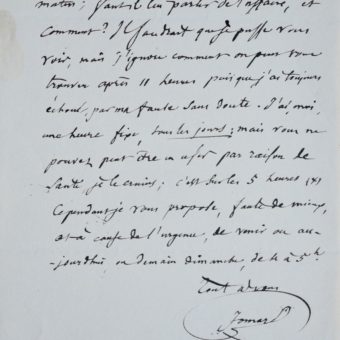 matin; faut-il lui parler de l'affaire, et
comment? Il faudrait que je pusse vous
voir, mais j'ignore comment on peut vous
trouver après 11 heures puisque j'ai toujours
échoué, par ma faute sans doute. J'ai, moi,
une heure fixe, tous les jours; mais vous ne
pouvez peut être en user par raison de
santé, je le crains; c'est sur les 5 heures (4)
Cependant je vous propose, faute de mieux,
et à cause de l'urgence, de venir ou au-
jourdhui ou demain dimanche, de 4 à 5h
tout à vous
Jomard